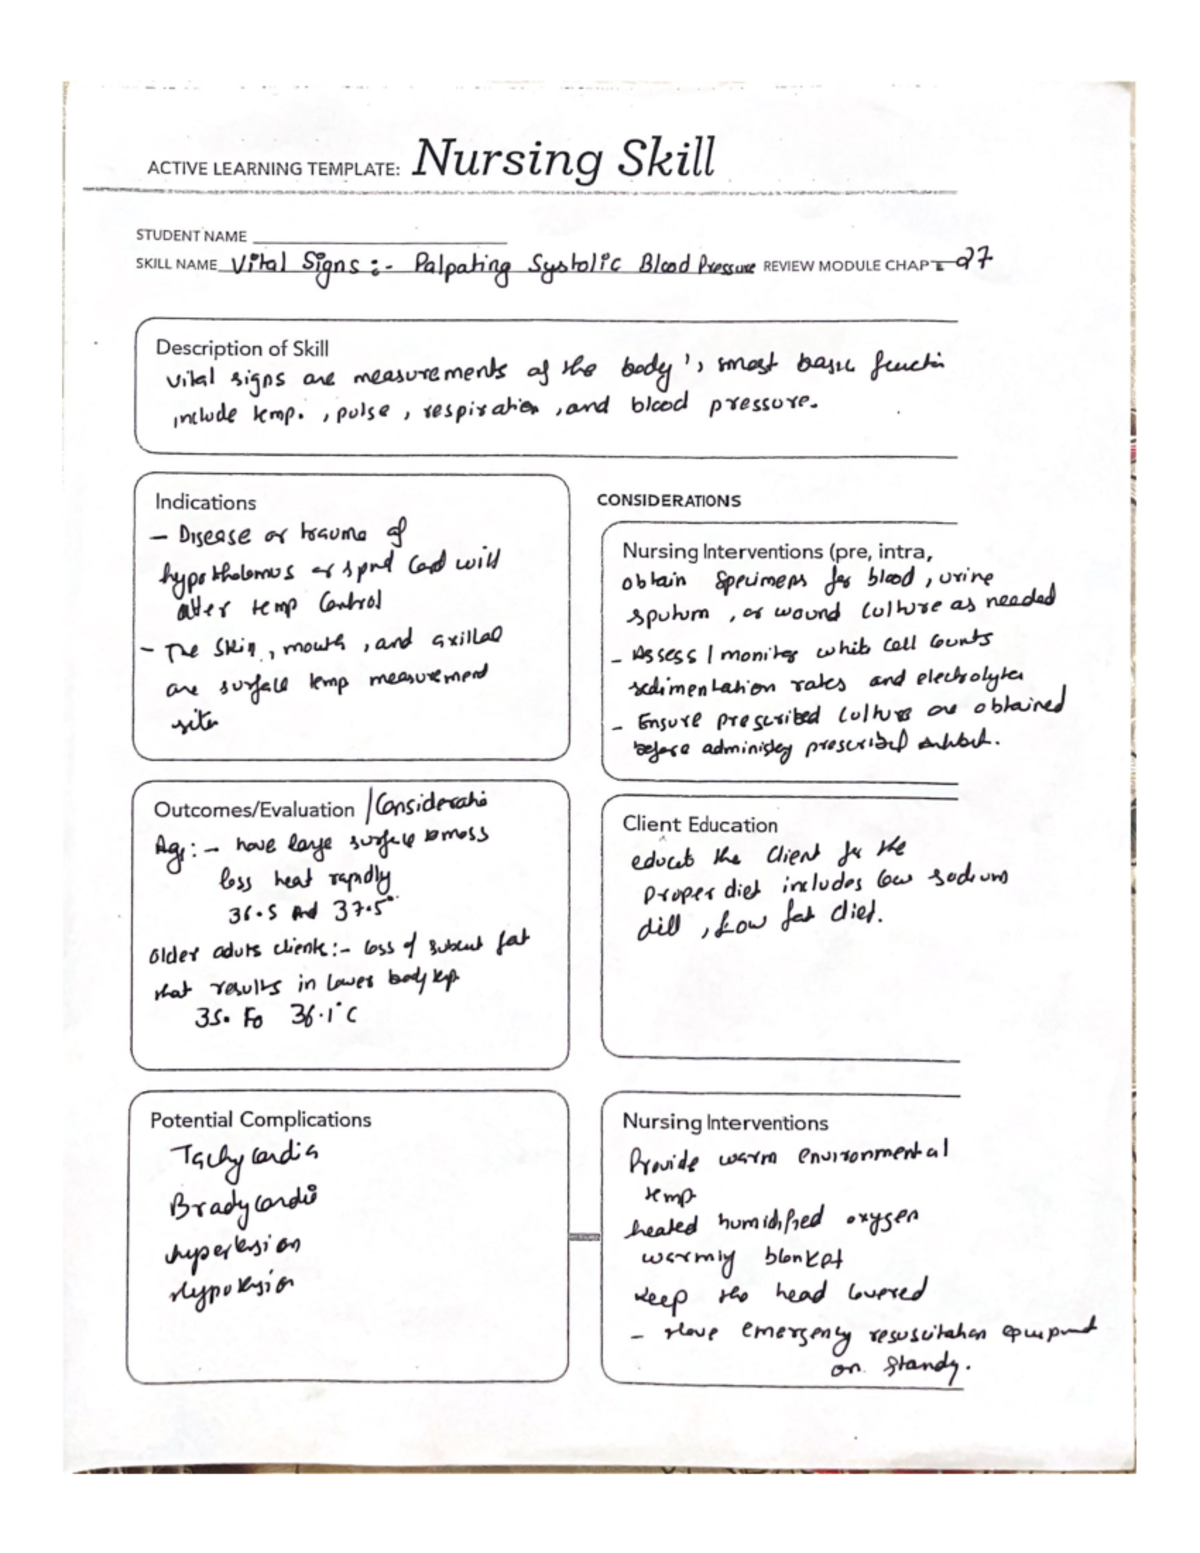 ACTIVE LEARNING TEMPLATE: Nursing Skill
STUDENT NAME
SKILL NAME Vital Signs :- Palpating Systolic Blood Pressure REVIEW MODULE CHAPTE 27
Description of Skill
Vital signs are measurements of the body's most basic functin
include temp. , pulse , respiration , and blood pressure.
Indications
- Disease or trauma of
hypothalamus or spnd Cord will
alter temp Control
- The Skin , mouth , and axillae
are surface temp measurement
site
CONSIDERATIONS
Nursing Interventions (pre, intra,
obtain Specimens for blood , urine
sputum , or wound Culture as needed
- Assess / monitor white Cell Counts
sedimentation rates and electrolytes
- Ensure prescribed Cultures are obtained
before administey prescribed
Outcomes/Evaluation / Consideratio
Age :- have large surface mass
loss heat rapidly
36.5 And 37.5°
older aduts client :- loss of subcut fat
that results in lower body temp
35. to 36.1°C
Client Education
educate the Client for the
Proper diet includes low sodium
, Low fat diet.
Potential Complications
Tachycardia
Bradycardia
hypertension
Hypotension
Nursing Interventions
Provide warm environmental
temp
heated humidified oxygen
warmly blanket
Keep the head Covered
- Have emergency resuscitation equipment
on Standy.